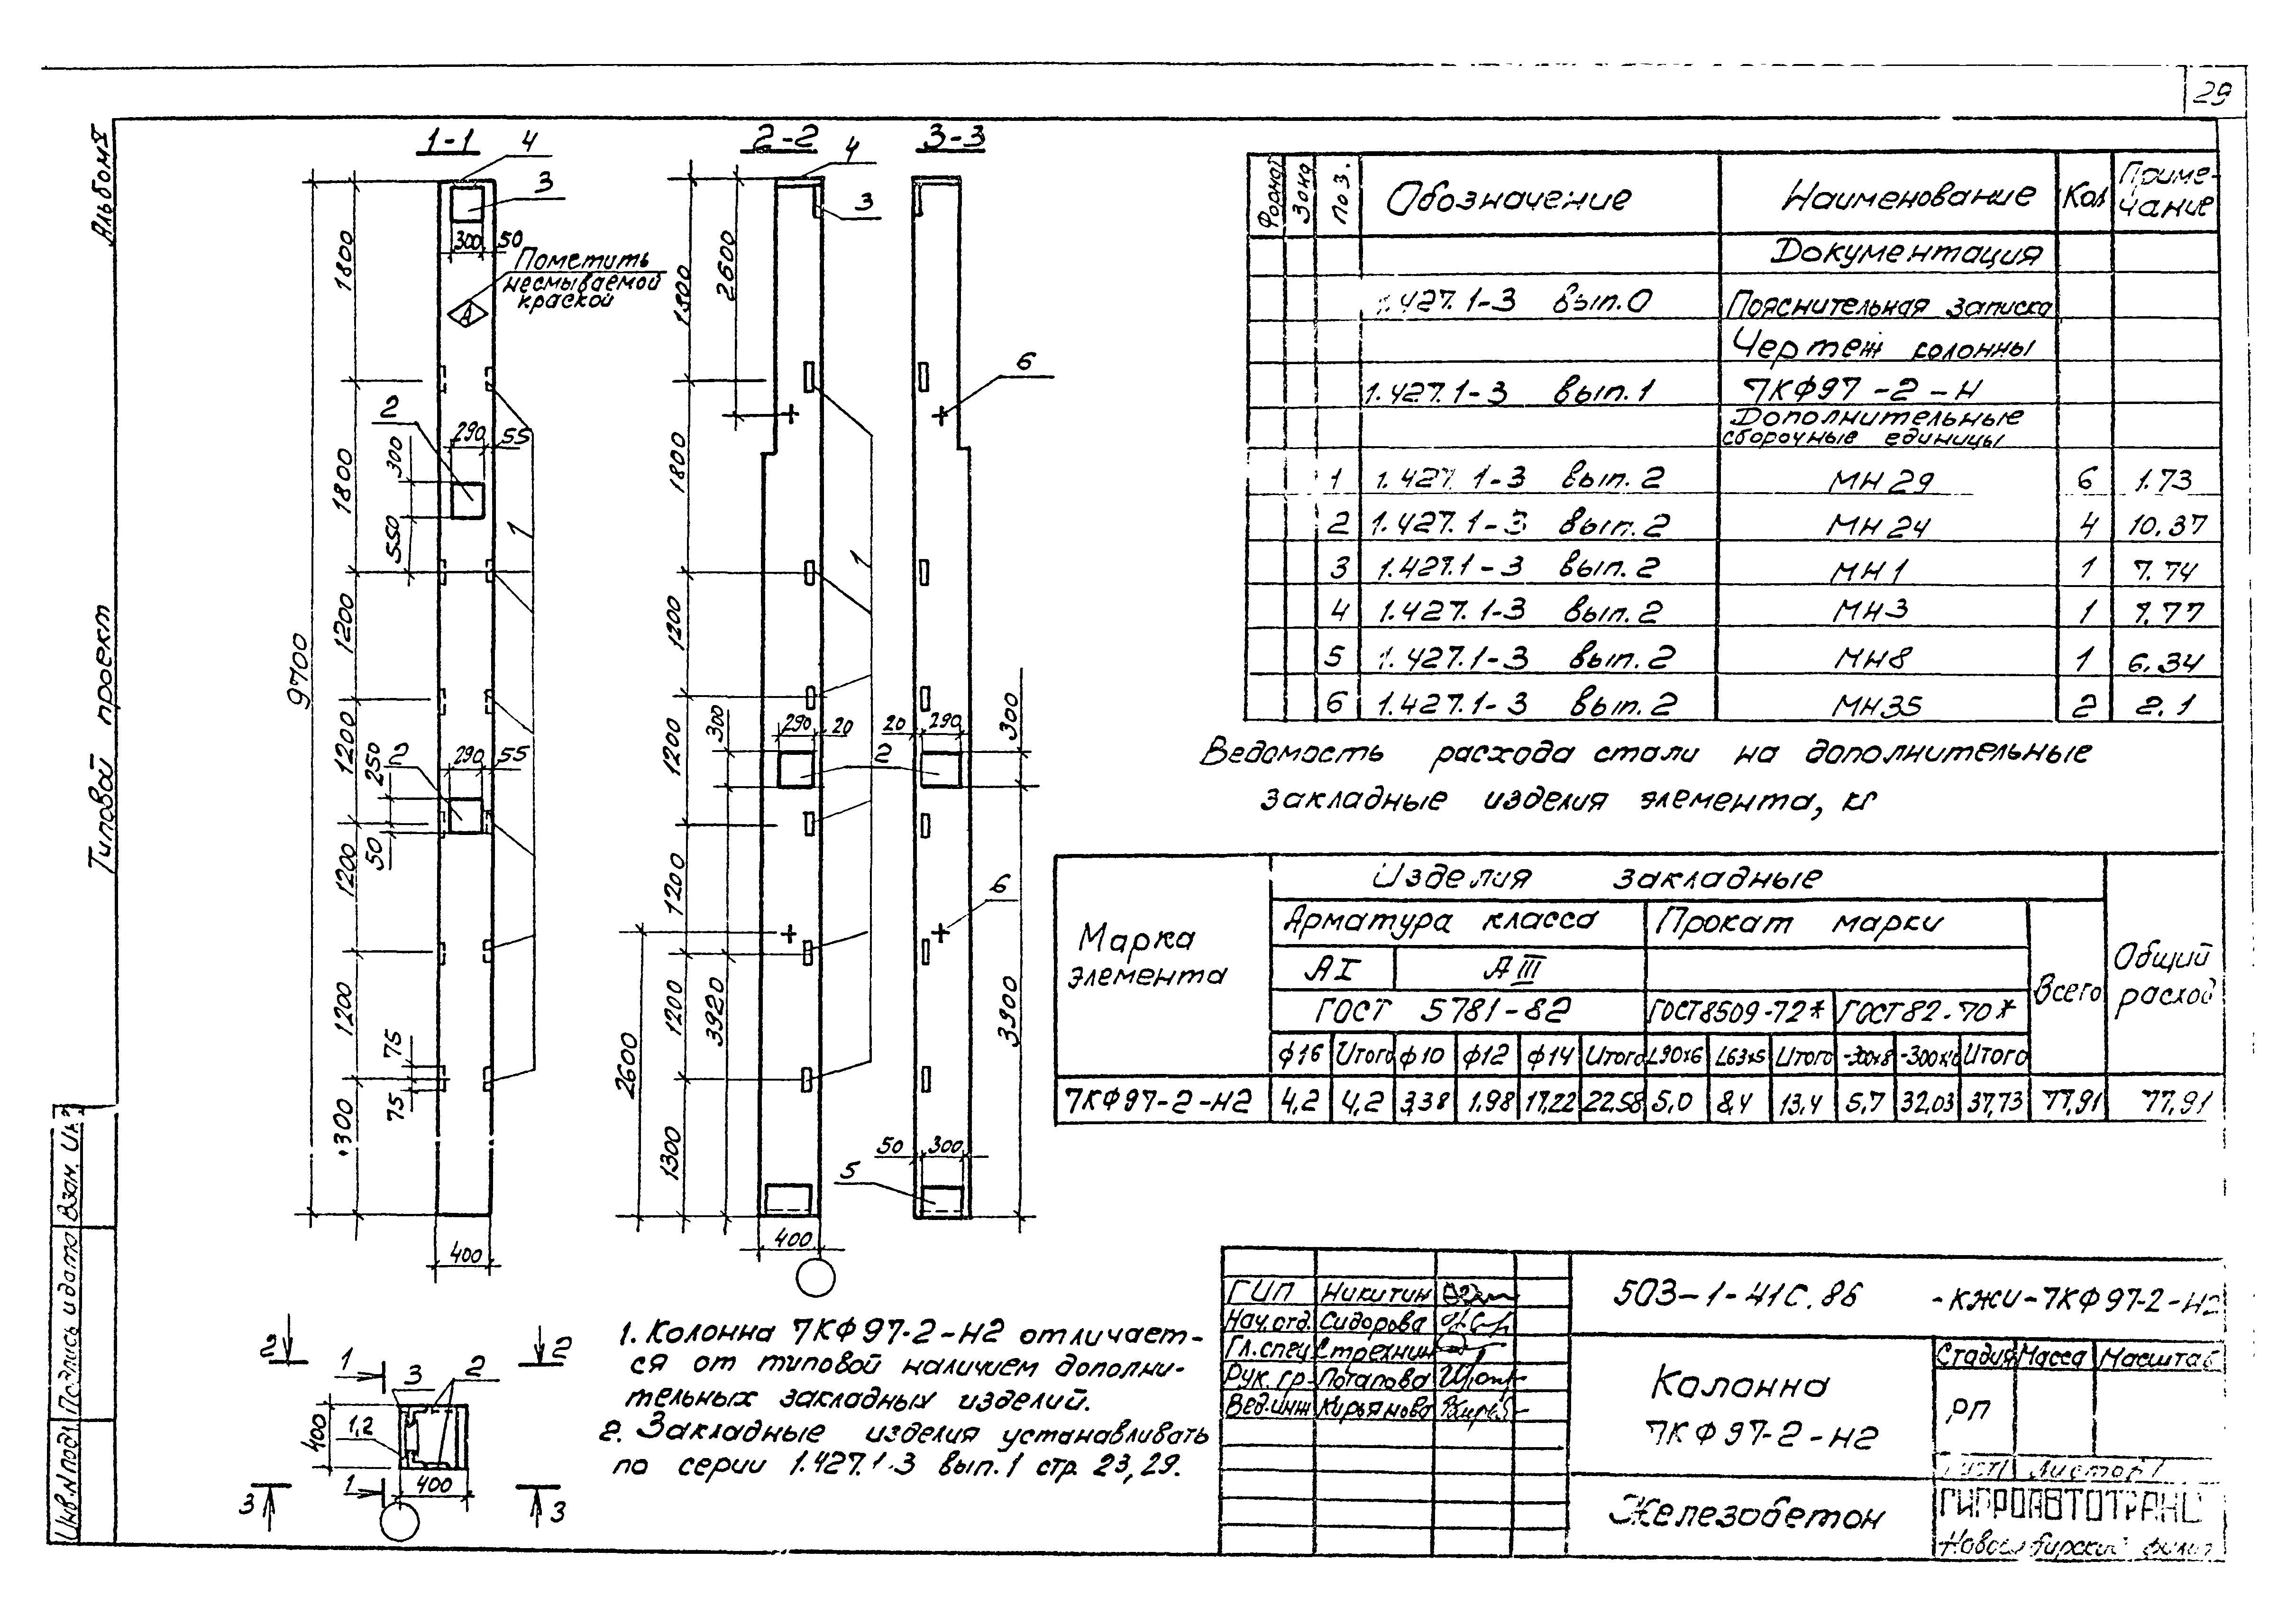 29
Альбом V
Типовой проект
Взам. Инв.
Подпись и дата
Инв. N подл
1-1
4
3
300 50
Пометить
несмываемой
краской
А
1800
1800
1200
1200
1200
1200
1300
9700
2
290 55
300
550
1
2
290 55
250
50
75
75
400
2-2
4
3
1800
2600
1800
1200
1200
1200
1200
1300
1
300
290 20
2
3920
2600
400
3-3
6
20 290
300
6
3900
50 300
5
2 2
1
3 2
1,2
400
400
1
3 3
1. Колонна 7КФ97-2-Н2 отличает-
ся от типовой наличием дополни-
тельных закладных изделий.
2. Закладные изделия устанавливать
по серии 1.427.1-3 вып.1 стр. 23, 29.
Формат Зона Поз. Обозначение Наименование Кол Приме-
чание
Документация
1.427.1-3 вып.0 Пояснительная записка
Чертеж колонны
1.427.1-3 вып.1 7КФ97-2-Н
Дополнительные
сборочные единицы
1 1.427.1-3 вып.2 МН29 6 1.73
2 1.427.1-3 вып.2 МН24 4 10.37
3 1.427.1-3 вып.2 МН1 1 7.74
4 1.427.1-3 вып.2 МН3 1 7.77
5 1.427.1-3 вып.2 МН8 1 6.34
6 1.427.1-3 вып.2 МН35 2 2.1
Ведомость расхода стали на дополнительные
закладные изделия элемента, кг
Марка
элемента
Изделия закладные
Общий
расход
Арматура класса Прокат марки Всего
АI АIII
ГОСТ 5781-82 ГОСТ8509-72* ГОСТ82-70*
ф16 Итого ф10 ф12 ф14 Итого L90х6 L63х5 Итого -300х8 Итого
7КФ97-2-Н2 4,2 4,2 3,38 1.98 17,22 22.58 5,0 8,4 13,4 5,7 32,03 37,73 77,91 77,91
ГИП Никитин
Нач.отд. Сидорова
Гл.спец Стрехнин
Рук.гр. Потапова
Вед.инж Кирьянова
503-1-41С.86 -КЖИ-7КФ97-2-Н2
Колонна
7КФ97-2-Н2
Стадия Масса Масштаб
РП
Лист 1 Листов 1
Железобетон
ГИПРОАВТОТРАНС
Новосибирский филиал